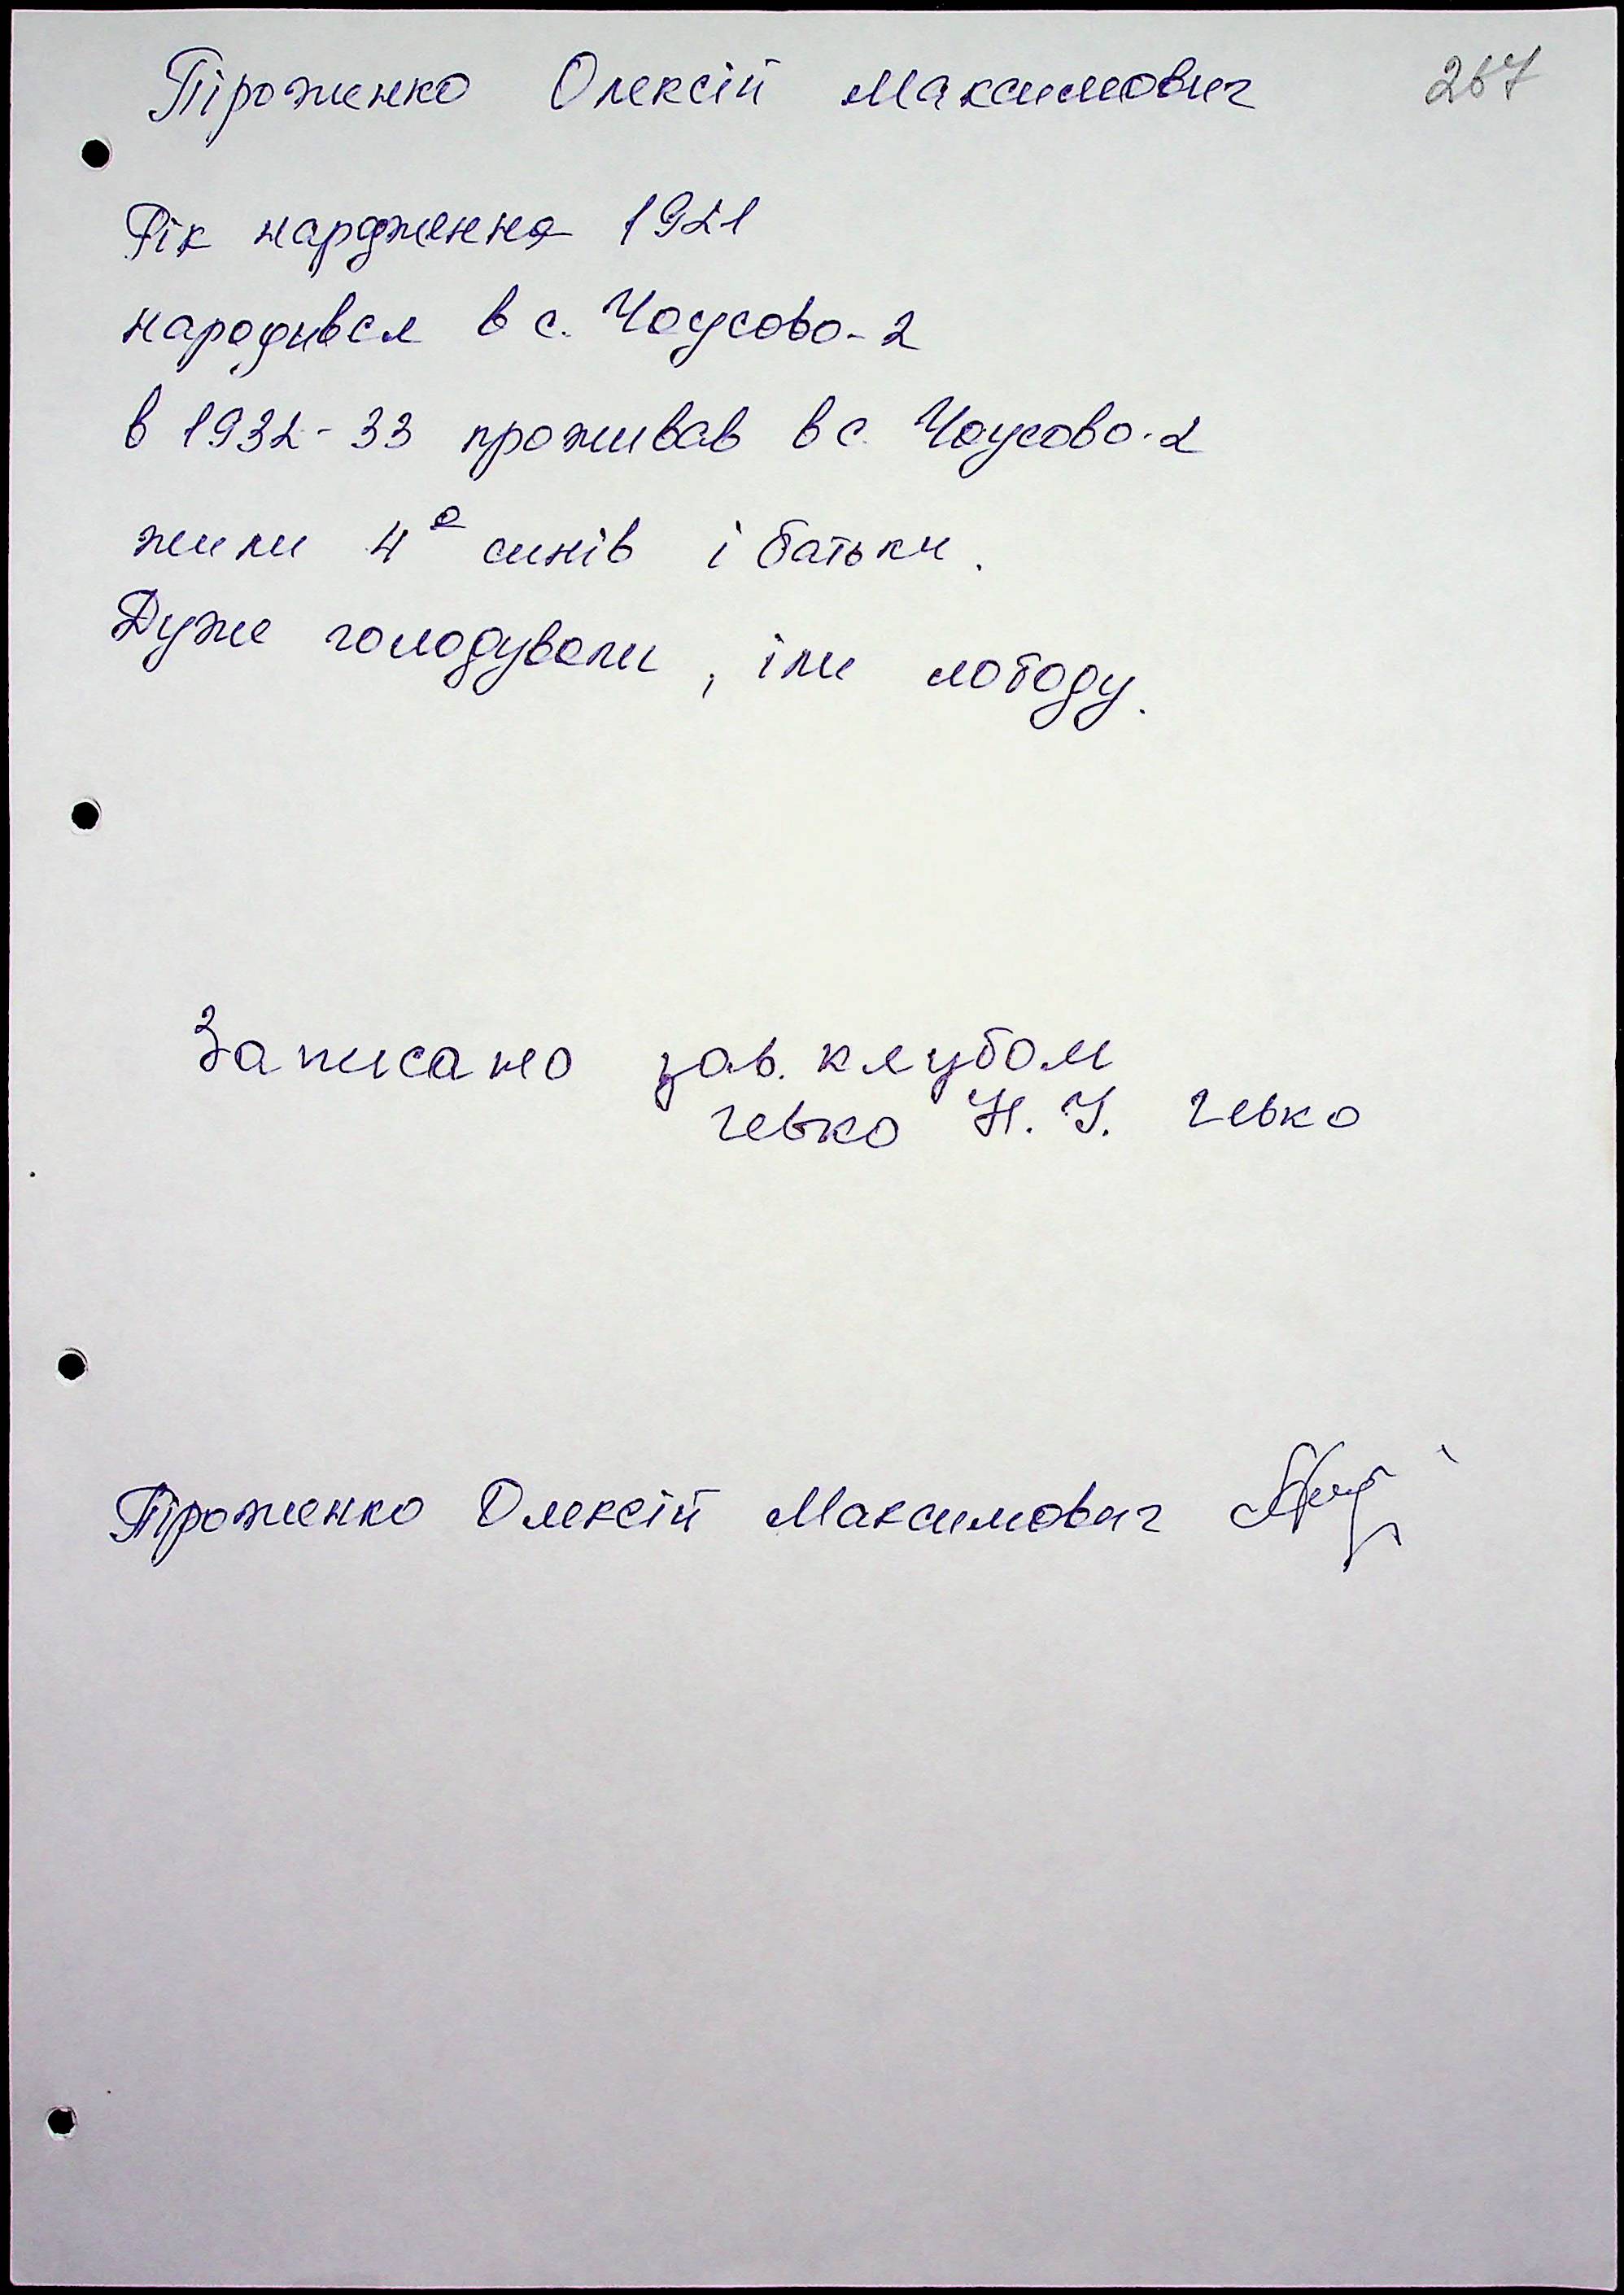 Піроженко Олексій Максимович 267
Рік нардження 1921
народився в с. Чоусово-2
в 1932-33 проживав в с. Чаусово-2
жили 4о синів і батьки.
Дуже голодували, їли лободу.
Записано зав. клубом
Гевко Н. І. Гевко
Піроженко Олексій Максимович